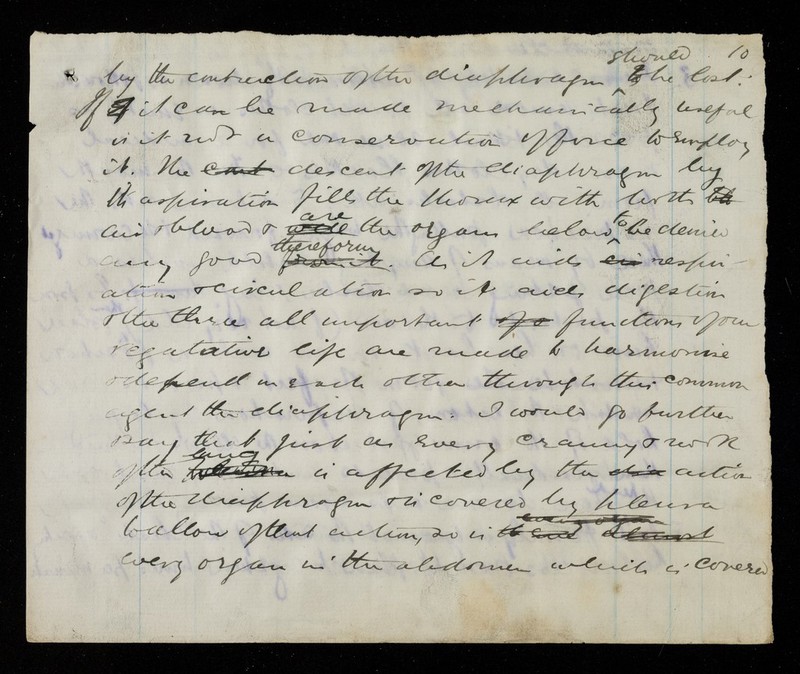 should 10
by the contraction of the diaphragm be lost.
If it can be made mechanically useful
is it not a conservation of force to employ
it. The cont descent of the diaphragm by
its aspiration fill the thorax with both th
air & blood & are the organs below to be denied
any good therefrom. As it aids in respir-
ation & circulation so it aids digestion
& the three all important of o functions of our
vegatative life are made to harmonise
& depend on each other through this common
agent the diaphragm. I would go further
& say that just as every cranny & nook
of the lung is affected by the dia action
of the diaphragm & is covered by pleura
to allow of that action, so is to and almost
every organ in the abdomen which is covered